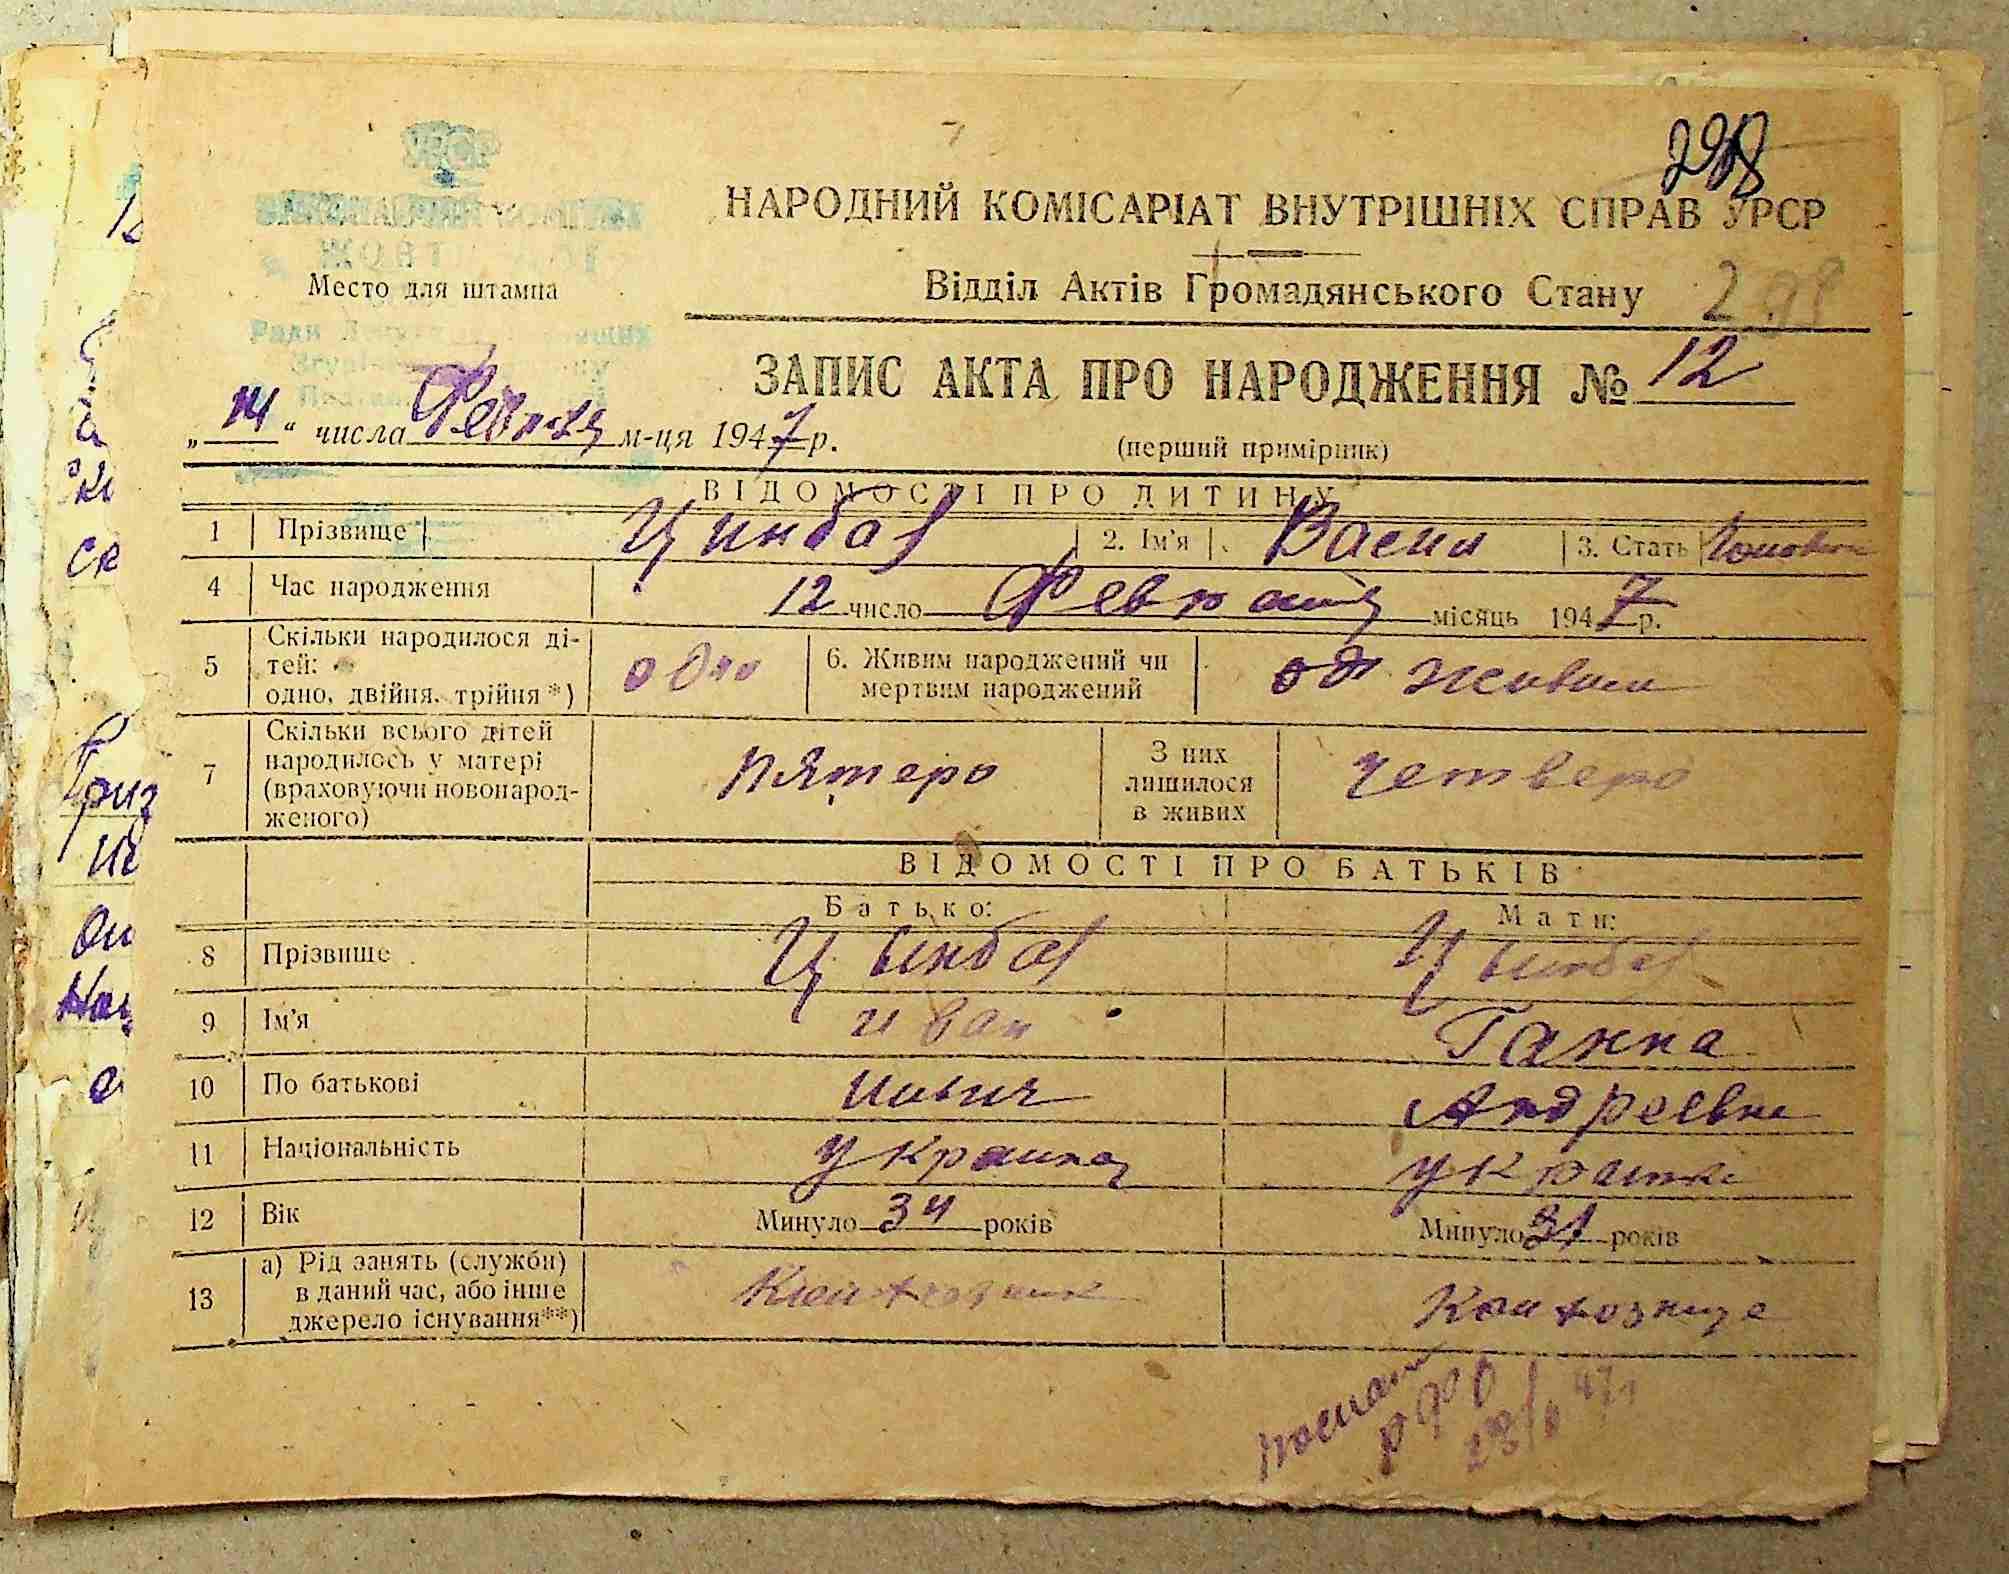 298
НАРОДНИЙ КОМІСАРІАТ ВНУТРІШНІХ СПРАВ УРСР
Место для штампа
Відділ Актів Громадянського Стану 298
ЗАПИС АКТА ПРО НАРОДЖЕННЯ № 12
„ “ числа м-ця 1947 р.
(перший примірник)
ВІДОМОСТІ ПРО ДИТИНУ
1 Прізвище Цинбал 2. Ім'я Васил 3. Стать
4 Час народження 12 число Февраля місяць 1947 р.
5 Скільки народилося ді-
тей:
одно, двійня, трійня*) одно 6. Живим народжений чи
мертвим народжений живим
7 Скільки всього дітей
народилось у матері
(враховуючи новонарод-
женого) пятеро З них
лишилося
в живих четверо
ВІДОМОСТІ ПРО БАТЬКІВ
Батько: Мати:
8 Прізвище Цынбал Цынбал
9 Ім'я Иван Ганна
10 По батькові Андреевна
11 Національність украинец украинка
12 Вік Минуло 34 років Минуло 31 років
13 а) Рід занять (служби)
в даний час, або інше
джерело існування**) Колхозник Колхозница